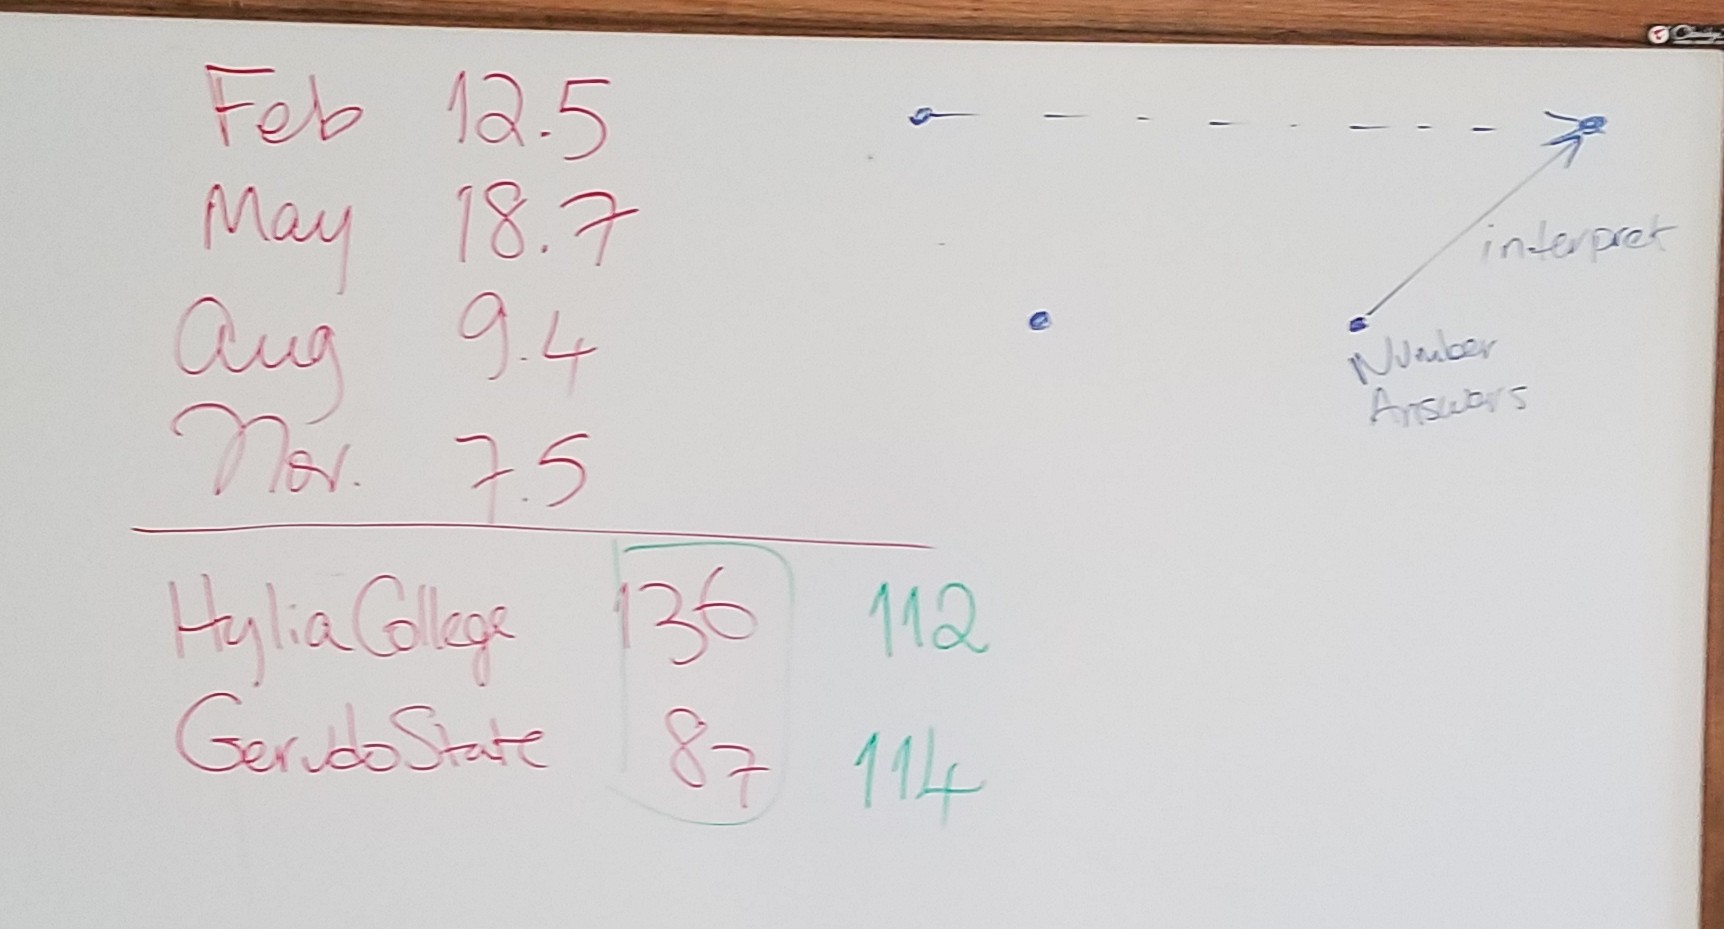 Feb 12.5
May 18.7
Aug 9.4
Nov. 7.5
Hylia College 136 112
Gerudo State 87 114
interpret
Number
Answers